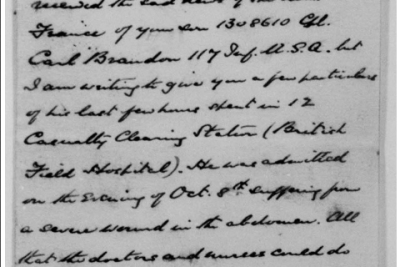 received the sad news of the
France of your son 1308610 Cpl.
Carl Brandon 117 Inf. U.S.A. but
I am writing to give you a few particulars
of his last few hours spent in 12
Casualty Clearing Station (British
Field Hospital). He was admitted
on the Evening of Oct. 8th suffering from
a severe wound in the abdomen. All
that the doctors and nurses could do